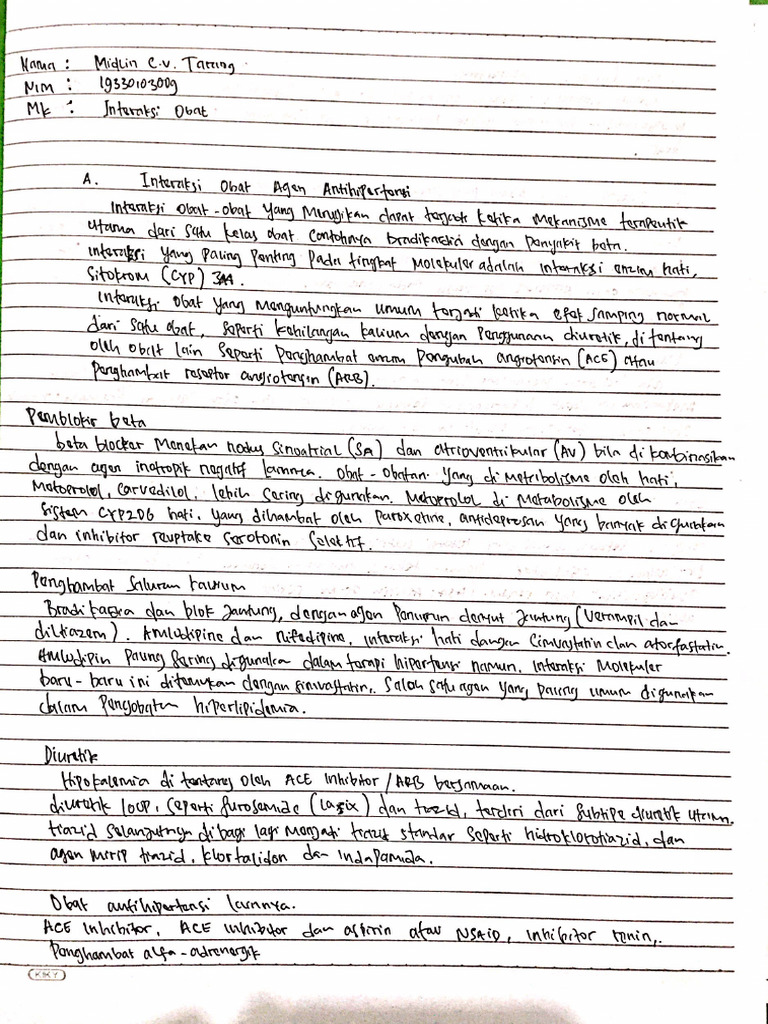 Nama : Midlin C.V. Tarring
Nim : 19330103009
Mk : Interaksi Obat
A. Interaksi Obat Agen Antihipertensi
Interaksi Obat-obat yang Merugikan dapat terjadi ketika Mekanisme terapeutik
utama dari satu kelas obat contohnya bradikardia dengan penyakit beta.
interaksi yang paling penting pada tingkat Molekuler adalah interaksi enzim hati,
Sitokrom (CYP) 3A4.
Interaksi obat yang menguntungkan umum terjadi ketika efek samping normal
dari satu obat, seperti kehilangan kalium dengan penggunaan diuretik, ditentang
oleh obat lain seperti Penghambat enzim Pengubah angiotensin (ACE) atau
Penghambat reseptor angiotensin (ARB).
Pemblokir beta
beta blocker Menekan nodus Sinoatrial (SA) dan atrioventrikular (AV) bila di kombinasikan
dengan agen inotropik negatif lainnya. obat-obatan yang di Metabolisme oleh hati,
Metoprolol, carvedilol, lebih sering digunakan. Metoprolol di Metabolisme oleh
Sistem CYP2D6 hati, yang dihambat oleh Paroxetine, antidepresan yang banyak digunakan
dan inhibitor reuptake Serotonin Selektif.
Penghambat Saluran Kalsium
Bradikardia dan blok Jantung, dengan agen Penurun denyut Jantung (Verampil dan
diltiazem). Amlodipine dan nifedipine, interaksi hati dengan Simvastatin dan atorfastatin.
Amlodipin Paling Sering digunakan dalam terapi hipertensi namun, interaksi Molekuler
baru-baru ini ditemukan dengan simvastatin, Salah satu agen yang paling umum digunakan
dalam Pengobatan hiperlipidemia.
Diuretik
Hipokalemia di tentang oleh ACE inhibitor / ARB bersamaan.
diuretik loop, seperti furosemide (Lasix) dan tiazid, terdiri dari Subtipe diuretik utama.
tiazid selanjutnya dibagi lagi menjadi tiazid standar seperti hidroklorotiazid, dan
agen mirip tiazid, klortalidon dan Indapamida.
Obat antihipertensi lainnya.
ACE Inhibitor, ACE inhibitor dan aspirin atau NSAID, inhibitor renin,
Penghambat alfa-adrenergik
KKY